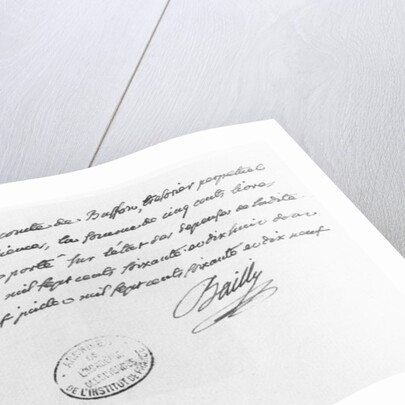 comte de Buffon, trésorier perpetuel
la somme de cinq cents livres,
porté sur l'état de dépenses de ladite
mil sept cents soixante et dix huit
mil sept cents soixante et dix neuf
Bailly
DE
DE L'INSTITUT DE